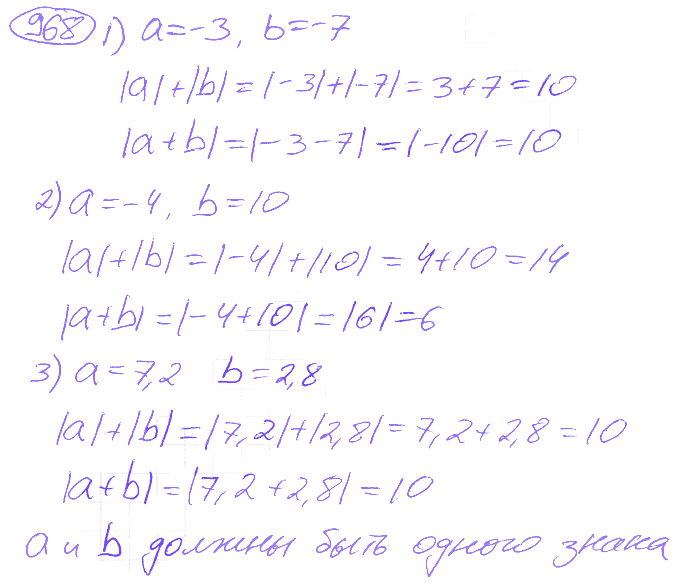 968 1) a=-3, b=-7
|a|+|b|=|-3|+|-7|=3+7=10
|a+b|=|-3-7|=|-10|=10
2) a=-4, b=10
|a|+|b|=|-4|+|10|=4+10=14
|a+b|=|-4+10|=|6|=6
3) a=7,2 b=2,8
|a|+|b|=|7,2|+|2,8|=7,2+2,8=10
|a+b|=|7,2+2,8|=10
a и b должны быть одного знака